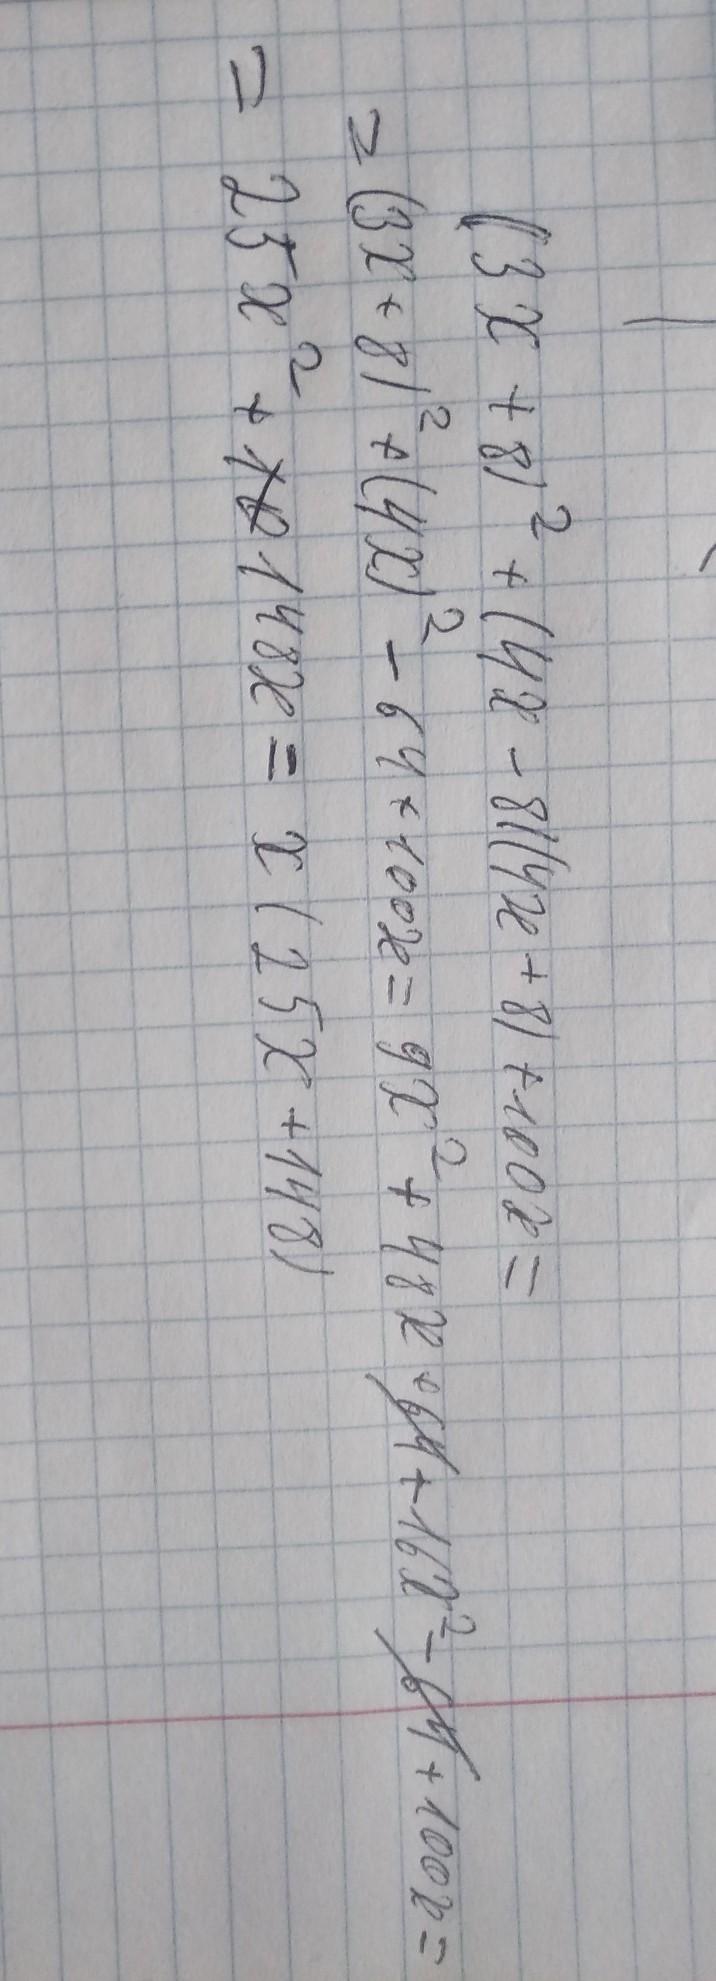 (3x + 8)² + (4x - 8)(4x + 8) + 100x =
= (3x + 8)² + (4x)² - 64 + 100x = 9x² + 48x + 64 + 16x² - 64 + 100x =
= 25x² + 148x = x(25x + 148)